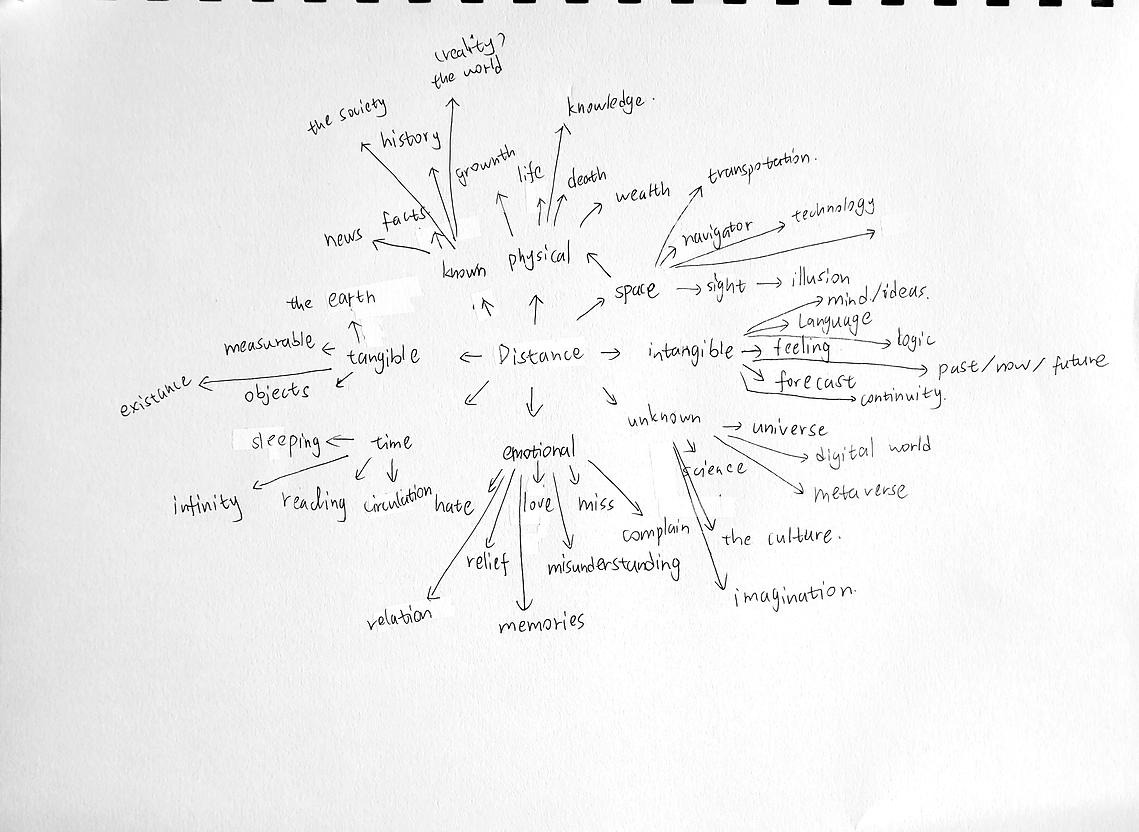 (reality)
the world
the society
knowledge.
history
grownth
life
death
wealth
transpotation.
news
facts
known
physical
navigator
technology
space
sight
illusion
the earth
mind/ideas.
measurable
tangible
Distance
intangible
Language
logic
feeling
past/now/future
existance
objects
forecast
continuity.
sleeping
time
emotional
unknown
universe
digital world
science
metaverse
infinity
reading
circulation
hate
love
miss
complain
the culture.
relief
misunderstanding
imagination.
relation
memories